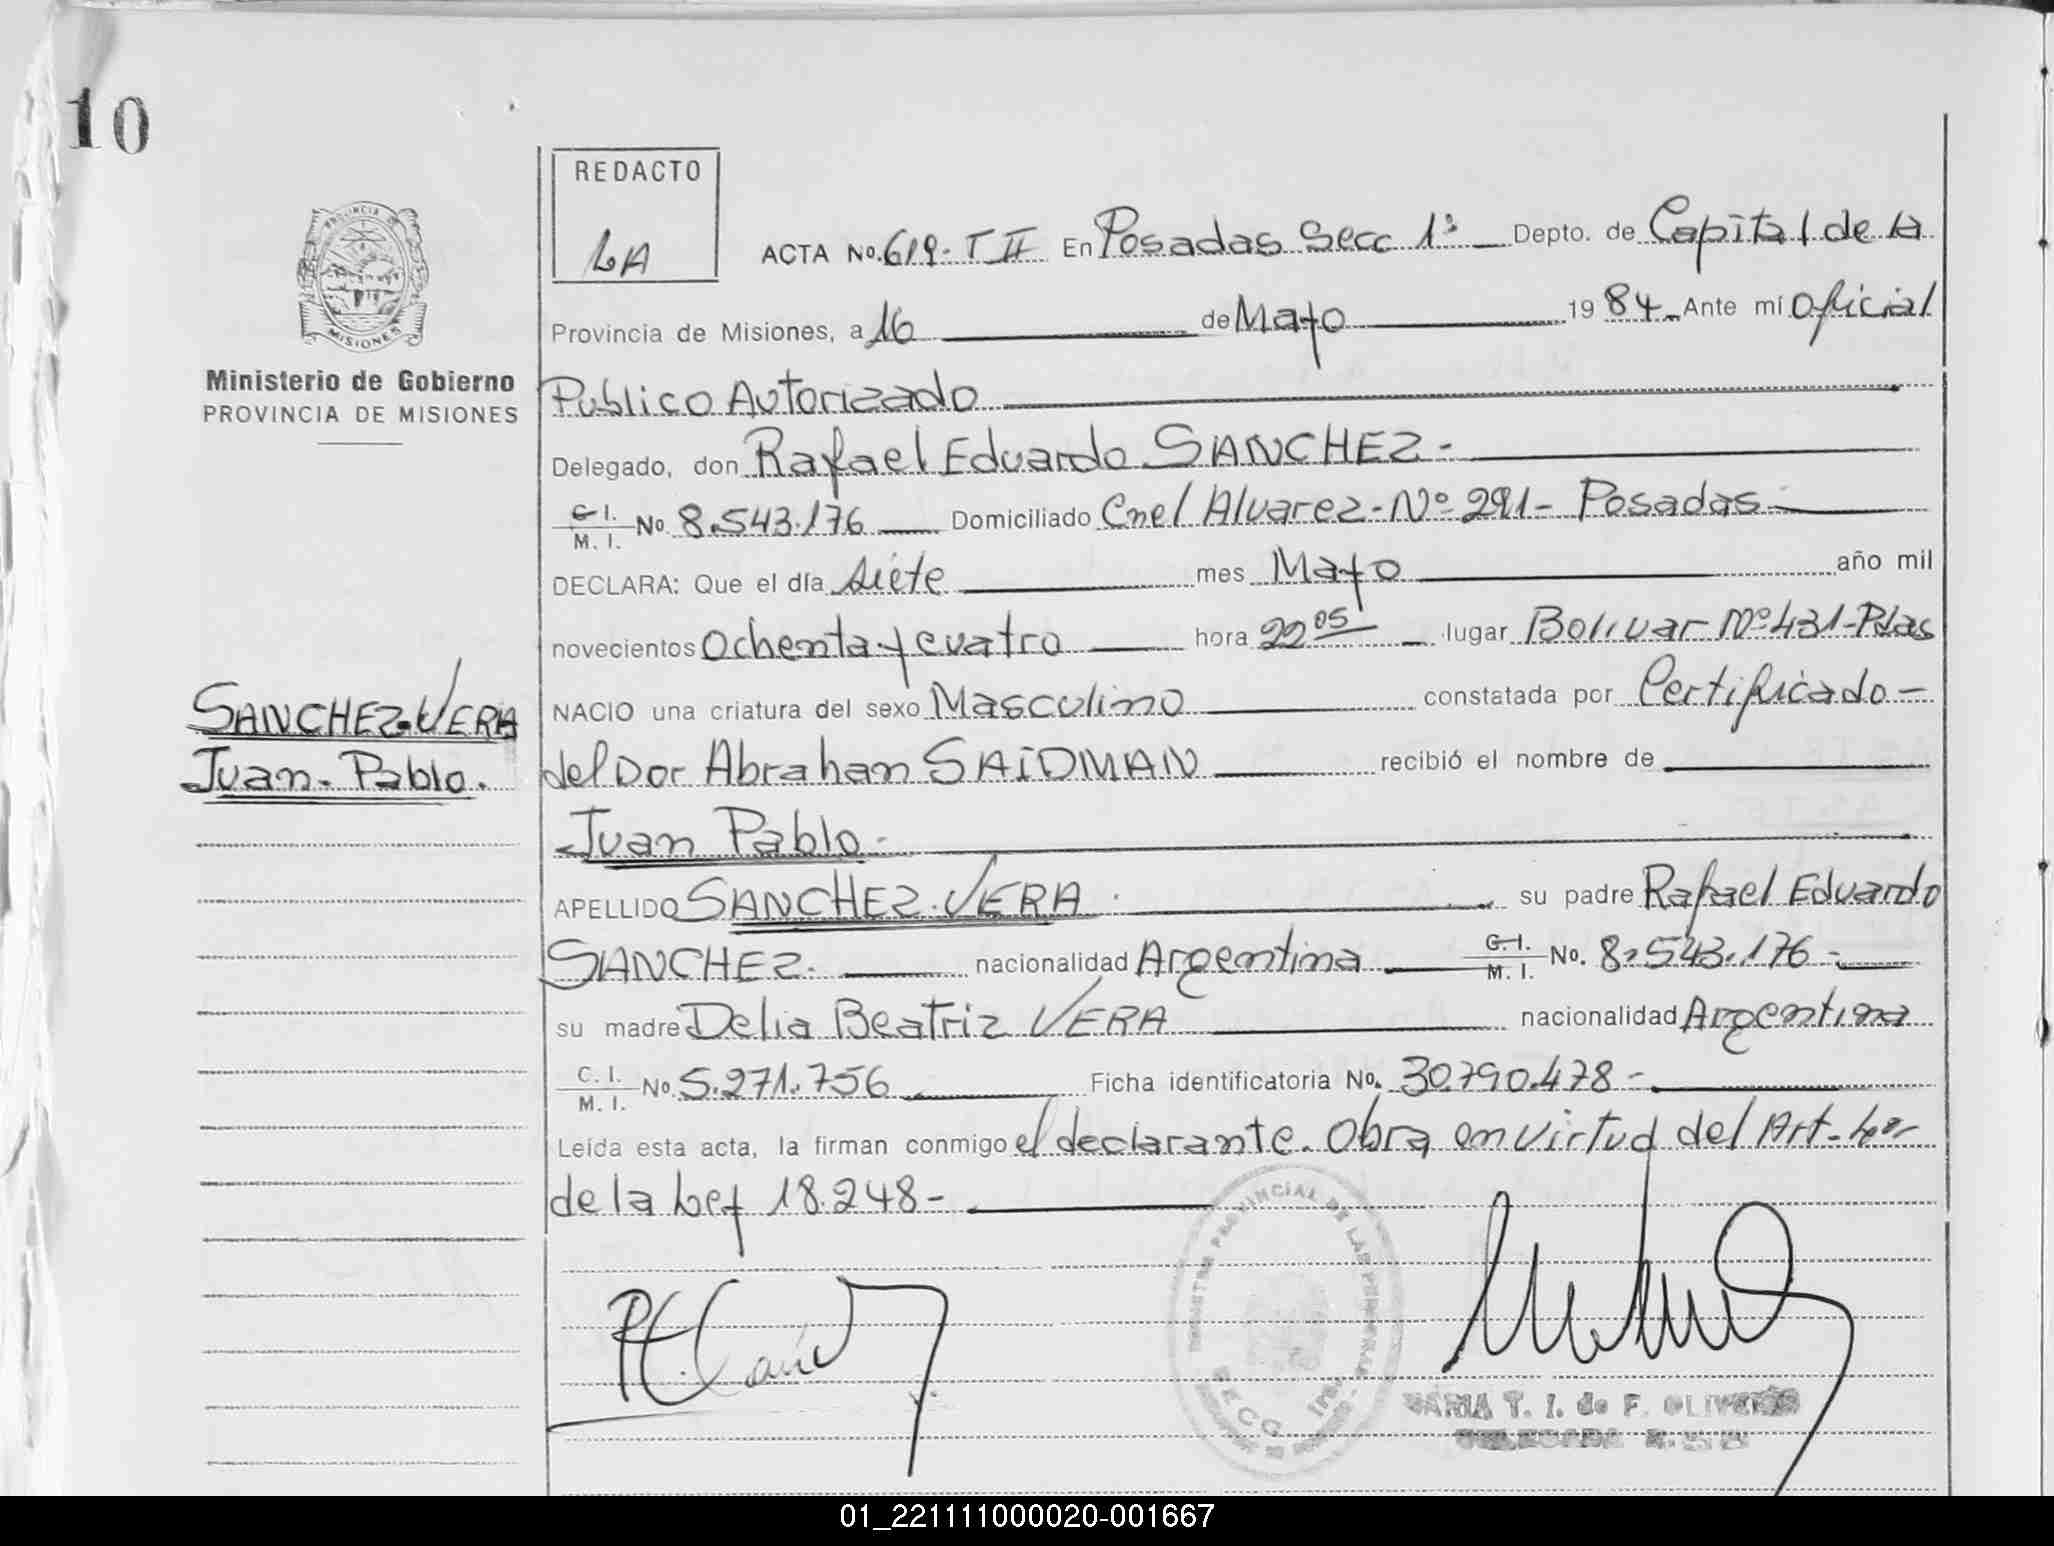 10
REDACTO
LA
PROVINCIA DE
MISIONES
Ministerio de Gobierno
PROVINCIA DE MISIONES
ACTA No. 619- T II En Posadas Secc 1ª Depto. de Capital de la
Provincia de Misiones, a 16 de Mayo 1984. Ante mí Oficial
Publico Autorizado
Delegado, don Rafael Eduardo SANCHEZ.-
C.I. M.I. No. 8.543.176 Domiciliado Cnel Alvarez-Nº 291- Posadas-
DECLARA: Que el día siete mes Mayo año mil
novecientos Ochenta y cuatro hora 22 05 lugar Bolivar Nº 431-Pdas
NACIO una criatura del sexo Masculino constatada por Certificado-
del Dor Abraham SAIDMAN recibió el nombre de
Juan Pablo.
APELLIDO SANCHEZ-VERA. su padre Rafael Eduardo
SANCHEZ. nacionalidad Argentina C.I. M.I. No. 8.543.176-
su madre Delia Beatriz VERA nacionalidad Argentina
C.I. M.I. No. 5.271.756 Ficha identificatoria No. 30.790.478-
Leída esta acta, la firman conmigo el declarante. Obra en virtud del Art. 4º
de la Ley 18.248-
SANCHEZ-VERA
Juan-Pablo.
REGISTRO PROVINCIAL DE LAS PERSONAS
SECC 1ra.
MARIA T. I. de F. OLIVERÍS
DELEGADA
01_221111000020-001667